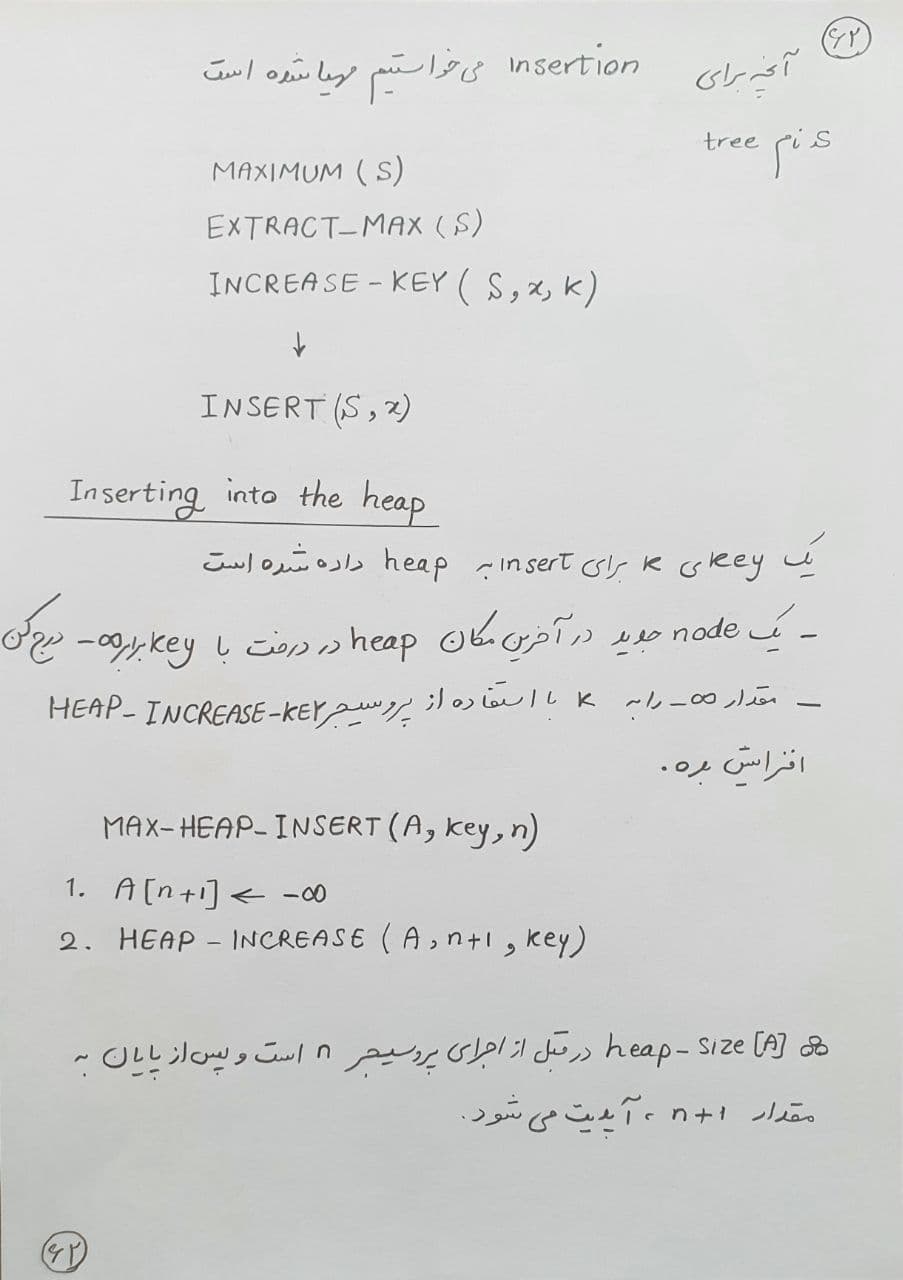 ۶۲
آنچه برای insertion می‌خواستیم مهیا شده است
S نیم tree
MAXIMUM (S)
EXTRACT_MAX (S)
INCREASE - KEY ( S, x, k)
↓
INSERT (S, x)
Inserting into the heap
یک key ی k برای insert به heap داده شده است
- یک node جدید در آخرین مکان heap در درخت با key برابر -∞ درج کن
- مقدار -∞ را به k با استفاده از پروسیجر HEAP_INCREASE-KEY
افزایش بده.
MAX-HEAP_INSERT (A, key, n)
1. A[n+1] ← -∞
2. HEAP - INCREASE ( A, n+1, key)
heap-size [A] در قبل از اجرای پروسیجر n است و پس از پایان به
مقدار n+1، آپدیت می‌شود.
۶۲